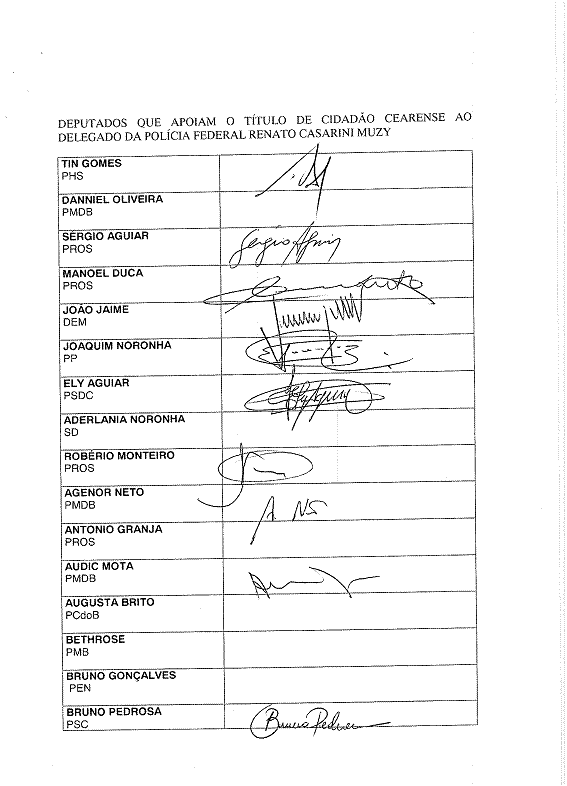 DEPUTADOS QUE APOIAM O TÍTULO DE CIDADÃO CEARENSE AO
DELEGADO DA POLÍCIA FEDERAL RENATO CASARINI MUZY
TIN GOMES
PHS
DANNIEL OLIVEIRA
PMDB
SÉRGIO AGUIAR
PROS
Sérgio Aguiar
MANOEL DUCA
PROS
JOÃO JAIME
DEM
JOAQUIM NORONHA
PP
ELY AGUIAR
PSDC
Ely Aguiar
ADERLANIA NORONHA
SD
ROBÉRIO MONTEIRO
PROS
AGENOR NETO
PMDB
ANTONIO GRANJA
PROS
AUDIC MOTA
PMDB
AUGUSTA BRITO
PCdoB
BETHROSE
PMB
BRUNO GONÇALVES
PEN
BRUNO PEDROSA
PSC